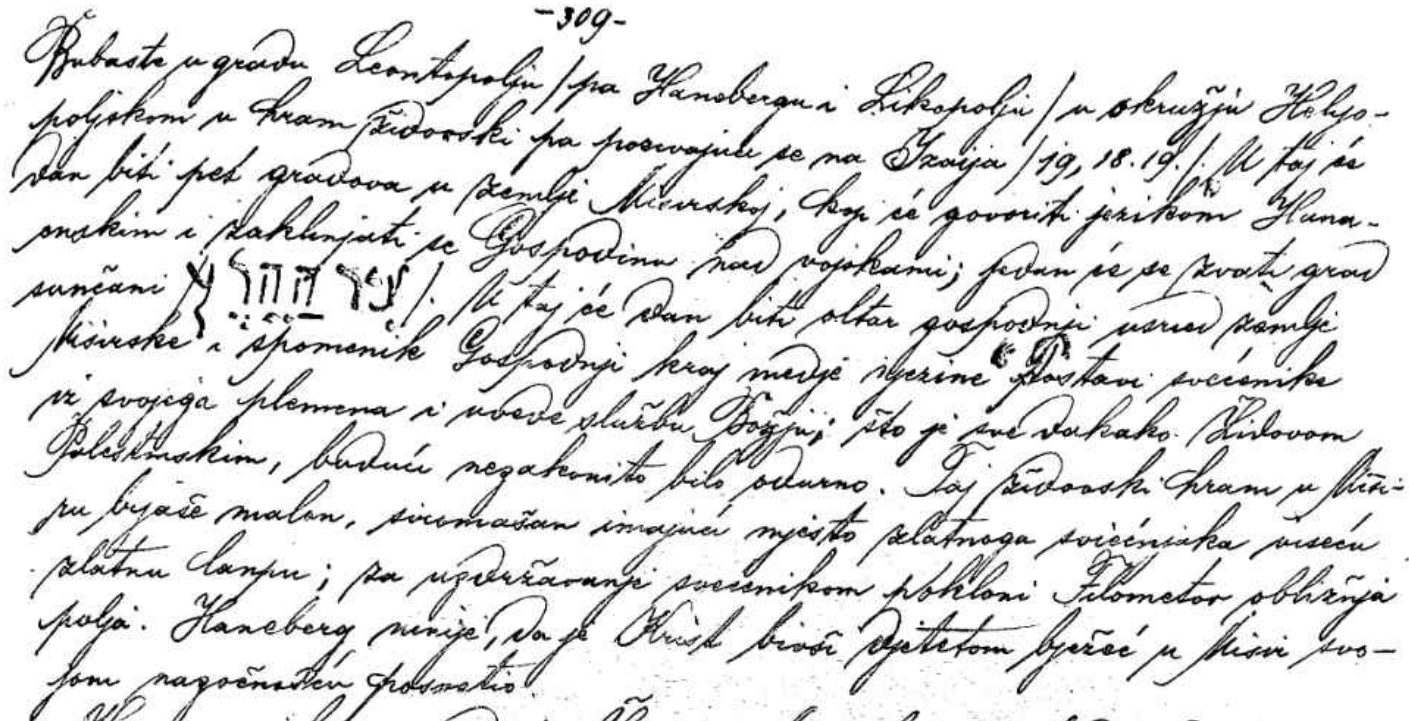 -309-
Bubaste u gradu Leontopolju / pa Hanebergu i Likopolju / u okružju Helio-
poljskom u hram židovski pa pozivajuć se na Izaija / 19, 18. 19. /. U taj će
dan biti pet gradova u zemlji Misirskoj, koji će govoriti jezikom Hana-
anskim i zaklinjati se Gospodinu nad vojskami; jedan će se zvati grad
sunčani / עיר ההרס /. U taj će dan biti oltar gospodnji usred zemlje
Misirske i spomenik Gospodnji kraj medje njezine" Postavi svećenike
iz svojega plemena i uvede službu Božju; što je sve dakako Židovom
Palestinskim, budući nezakonito bilo odurno. Taj židovski hram u Misi-
ru bijaše malen, siromašan imajući mjesto zlatnoga sviećnjaka viseću
zlatnu lampu; za uzdržavanje svećenikom pokloni Filometor obližnja
polja. Haneberg mnije, da je Krist bivši djetetom bježeć u Misir svo-
jom nazočnošću posvetio